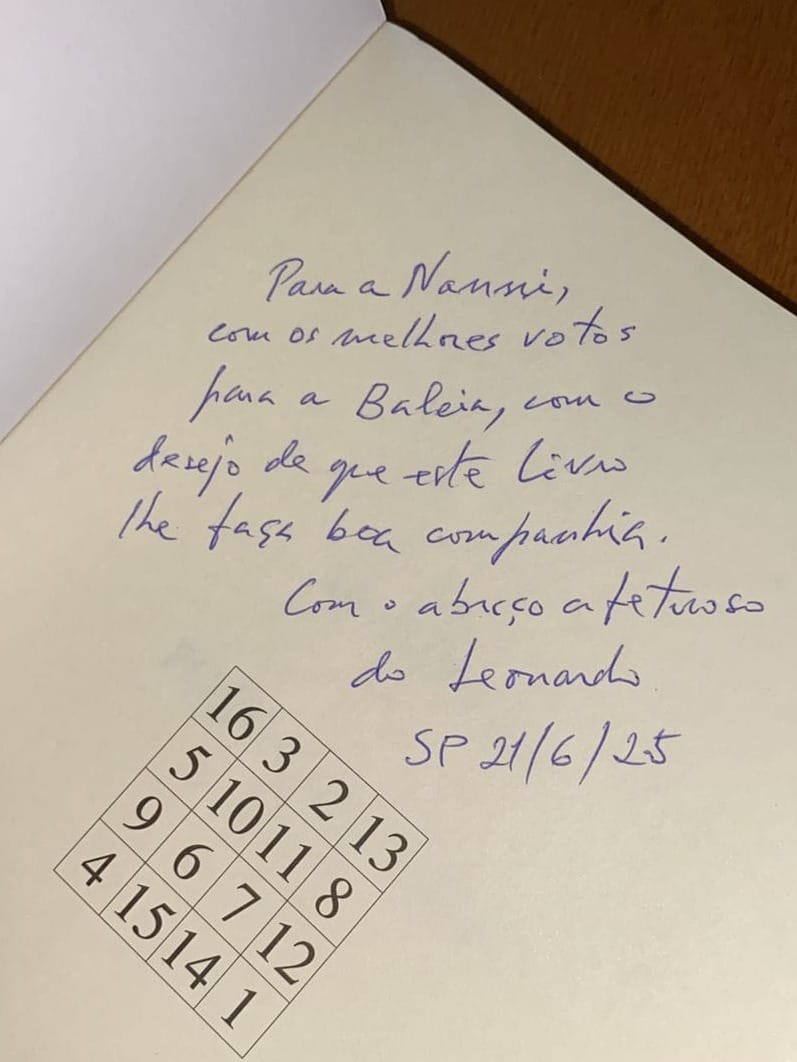 Para a Nanni,
com os melhores votos
para a Baleia, com o
desejo de que este livro
lhe faça boa companhia.
Com o abraço afetuoso
do Leonardo
SP 21/6/25
16 3 2 13
5 10 11 8
9 6 7 12
4 15 14 1